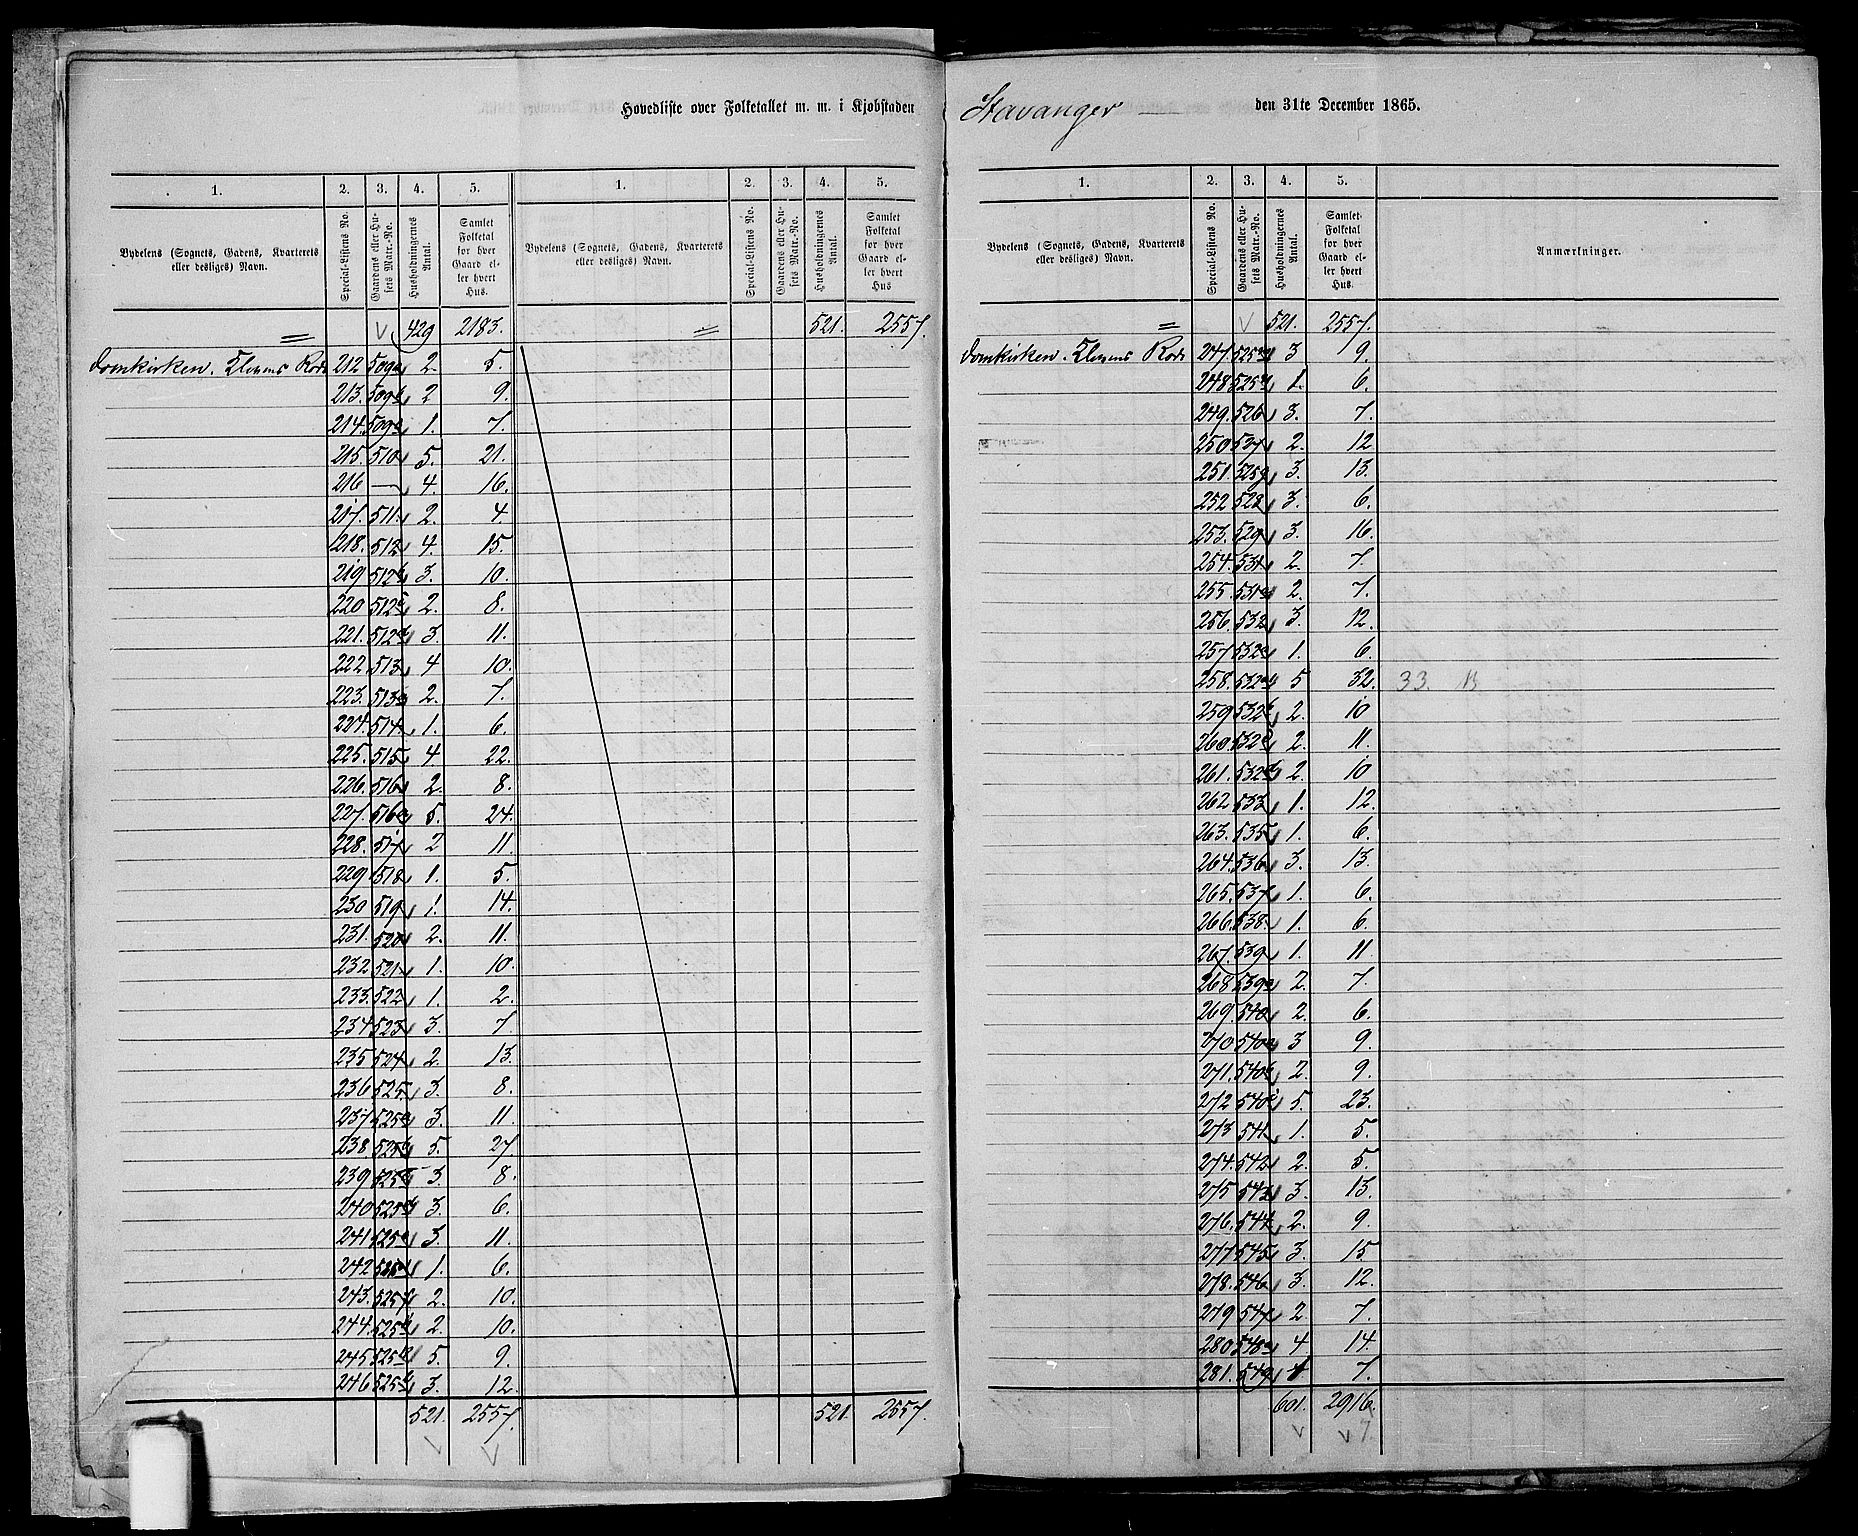 Hovedliste over Folketallet m. m. i Kjøbstaden Stavanger den 31te December 1865.
1. 2. 3. 4. 5. 1. 2. 3. 4. 5.
Bydelens (Sognets, Gadens, Kvarterets eller desliges) Navn. Special-Listens No. Gaardens eller Husets Matr.-No. Husholdningernes Antal. Samlet Folketal for hver Gaard eller hvert Hus. Bydelens (Sognets, Gadens, Kvarterets eller desliges) Navn. Special-Listens No. Gaardens eller Husets Matr.-No. Husholdningernes Antal. Samlet Folketal for hver Gaard eller hvert Hus
429 2183. 521. 2557.
Domkirken. 212 509a 2. 5.
213. 509b 2 9.
214. 509c 1. 7.
215. 510 5. 21.
216 — 4. 16.
217. 511. 2. 4.
218. 512 4. 15.
219 512b 3. 10.
220 512c 2. 8.
221. 512d 3. 11.
222 513 4 10.
223. 513a 2. 7.
224. 514 1. 6.
225. 515 4 22.
226. 516 2. 8.
227. 516a 5. 24.
228. 517 2 11.
229 518 1. 5.
230 519 1. 14.
231. 520 2. 11.
232 521 1. 10.
233. 522 1. 2.
234 523 3. 7.
235 524 2. 13.
236 525 3. 8.
237 525a 3. 11.
238 525b 5. 27
239 525c 3. 8.
240 525d 3. 6.
241 525e 3. 11.
242 1. 6.
243. 525f 2. 10.
244. 2. 10.
245 5. 9.
246 3. 12.
521. 2557. 521. 2557.
1. 2. 3. 4. 5.
Bydelens (Sognets, Gadens, Kvarterets eller desliges) Navn. Special-Listens No. Gaardens eller Husets Matr.-No. Husholdningernes Antal. Samlet Folketal for hver Gaard eller hvert Hus. Anmærkninger.
521. 2557.
Domkirken. 247. 3 9.
248 1. 6.
249. 526 3. 7.
250 2. 12
251. 525g 3. 13.
252 528 3. 6.
253. 529 3. 16.
254. 531 2. 7.
255. 531a 2. 7.
256. 532 3. 12.
257 532a 1. 6.
258. 5 32. 33.
259 532b 2. 10
260. 532c 2. 11.
261. 532d 2. 10
262 533 1. 12.
263. 535 1. 6.
264. 536 3. 13.
265. 537 1. 6.
266. 538. 1. 6.
267. 539 1. 11
268 539a 2. 7.
269. 540 2. 6.
270 540a 3 9.
271. 540b 2. 9.
272 540c 5. 23.
273 541 1. 5.
274. 542 2. 5.
275 543 3. 13.
276. 544 2. 9.
277 545 3. 15.
278. 546 3. 12.
279 547 2 7.
280 548a 4 14.
281. 549 1 7.
601. 2916.
7